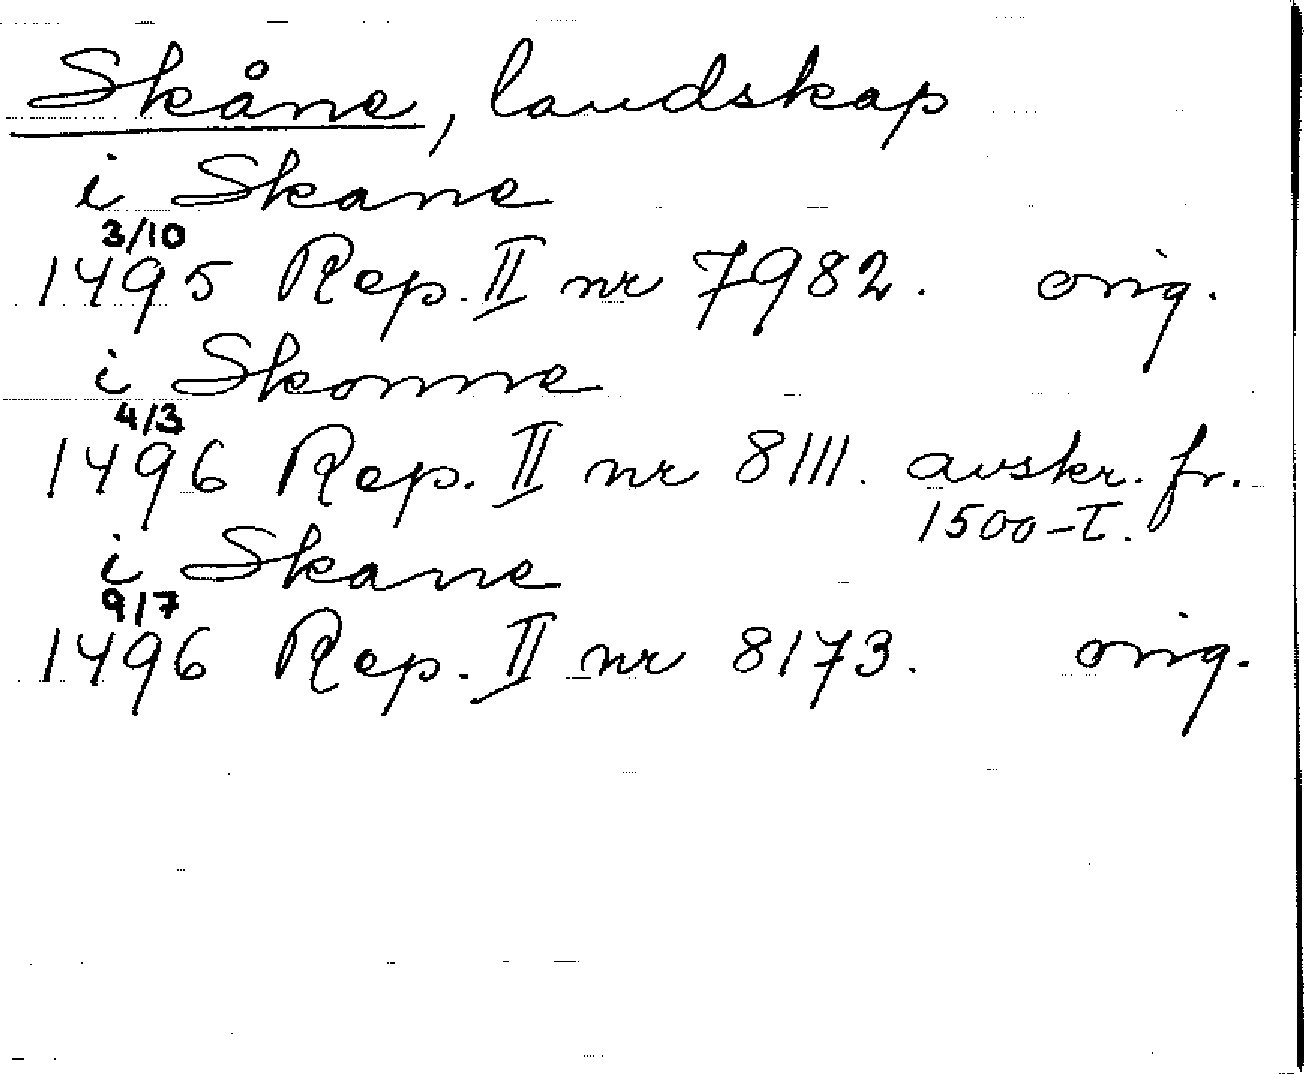 Skåne, landskap
i Skane
3/10
1495 Rep. II nr 7982. orig.
i Skonne
4/3
1496 Rep. II nr 8111. avskr. fr.
1500-t.
i Skane
9/7
1496 Rep. II nr 8173. orig.